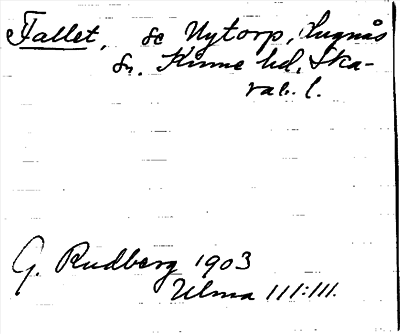 Fallet, se Nytorp, Lugnås
sn. Kinne hd, Ska-
rab. l.
G. Rudberg 1903
Ulma 111:111.